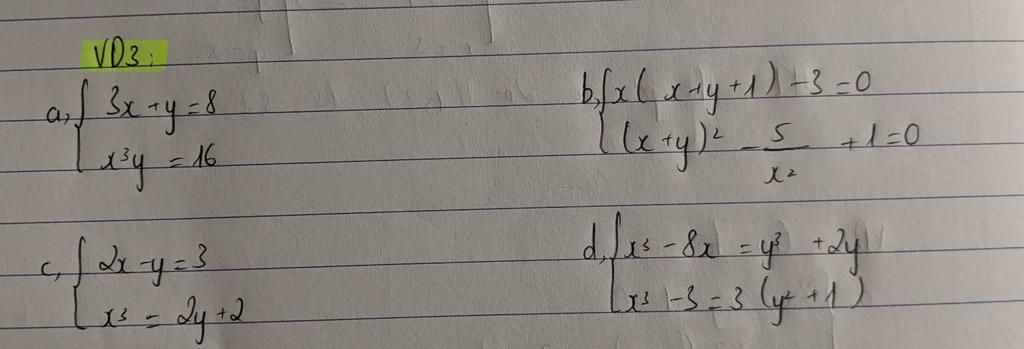 VD3:
a, { 3x + y = 8
x³y = 16
b, { x(x+y+1) - 3 = 0
(x+y)² - 5/x² + 1 = 0
c, { 2x - y = 3
x³ = 2y + 2
d, { x³ - 8x = y³ + 2y
x³ - 3 = 3(y² + 1)